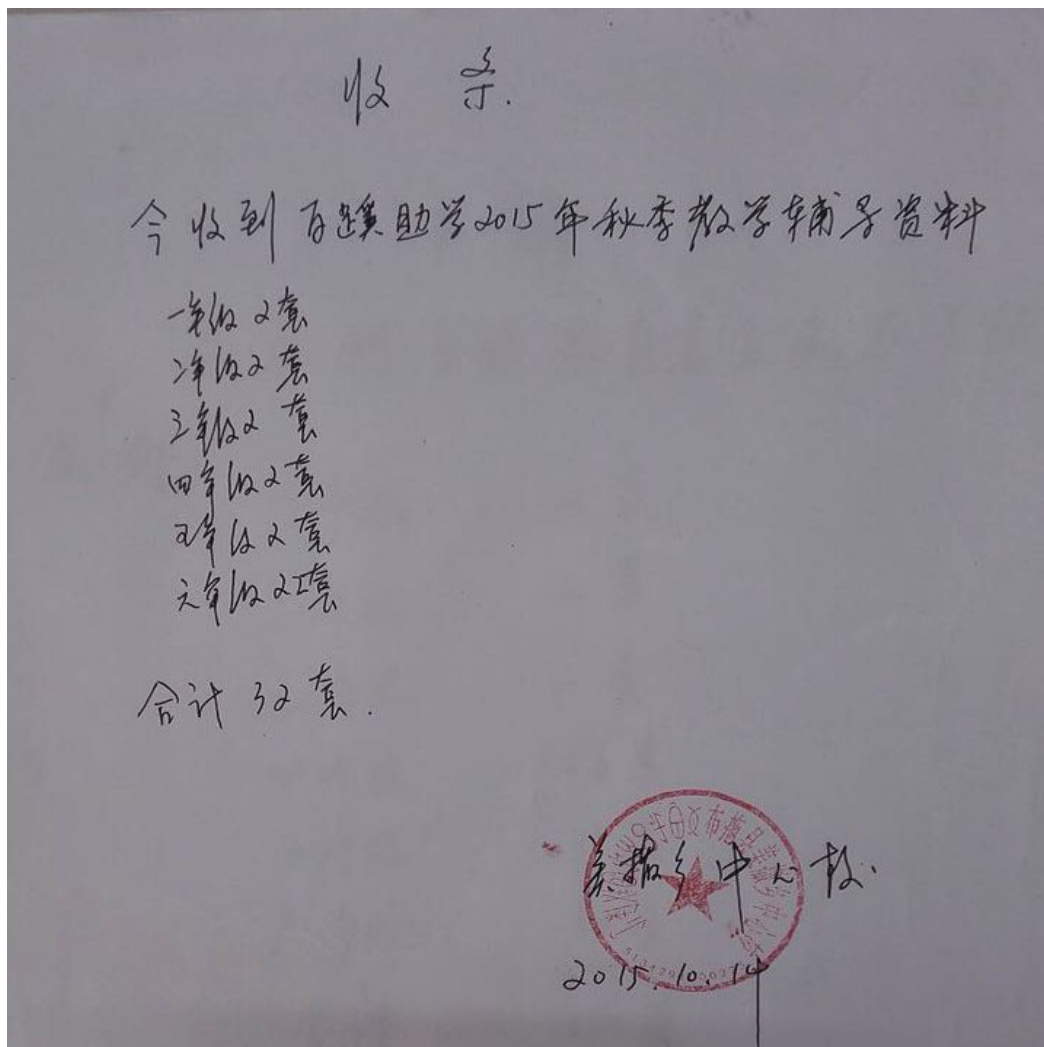 收条.
今收到百蹊助学2015年秋季教学辅导资料
一年级2套
二年级2套
三年级2套
四年级2套
五年级2套
六年级22套
合计32套.
美撒乡中心校.
2015.10.14